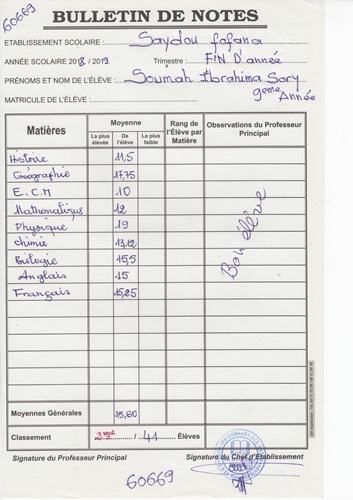 60669
BULLETIN DE NOTES
ETABLISSEMENT SCOLAIRE : Saydou fofana
ANNÉE SCOLAIRE 2018 / 2019 Trimestre : FIN D'année
PRÉNOMS ET NOM DE L'ÉLÈVE : Soumah Ibrahima Sory
MATRICULE DE L'ÉLÈVE : 9eme Année
Matières
Moyenne
La plus élevée
De l'élève
La plus faible
Rang de l'Élève par Matière
Observations du Professeur Principal
Histoire 11,5
Géographie 17,75
E.C.M 10
Mathematique 12
Physique 19
chimie 13,12
Biologie 15,5
Anglais 15
Français 15,25
Bon élève
Moyennes Générales 15,60
Classement 2 / 41 Élèves
Signature du Professeur Principal
Signature du Chef d'Établissement
60669